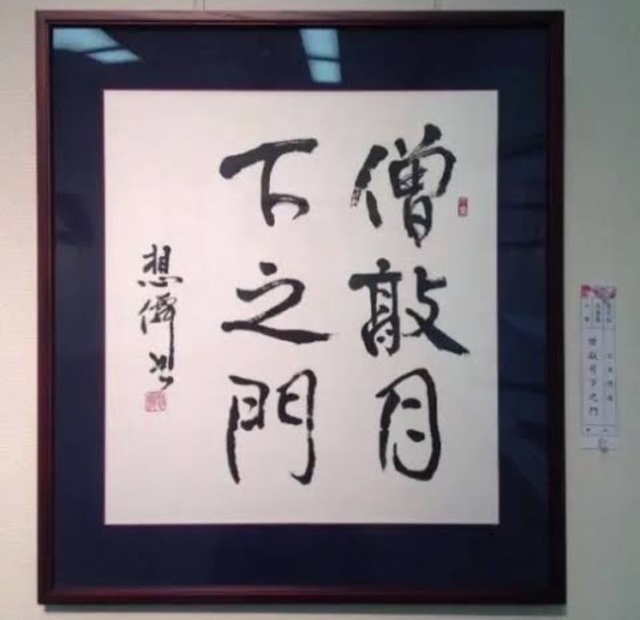 僧敲月
下之門
想僊書
僧敲月下之門